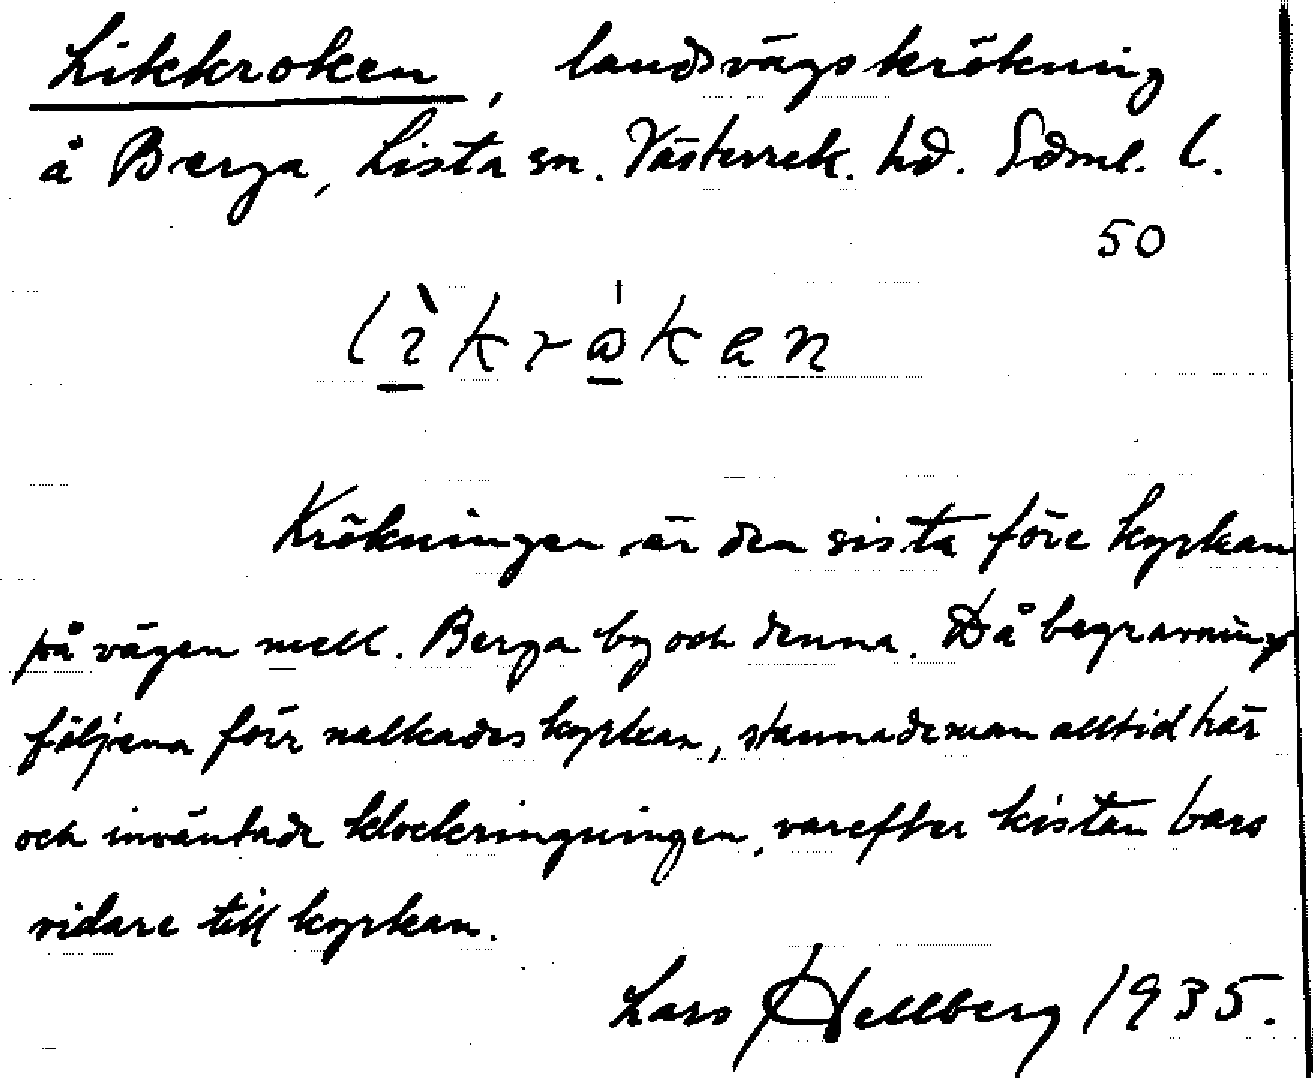 Likkroken, landsvägskrökning
å Berga, Lista sn. Västerrek. hd. Sdml. l.
50
lìkrokan
Krökningen är den sista före kyrkan
på vägen mell. Berga by och denna. Då begravnings
följena förr nalkades kyrkan, stannade man alltid här
och inväntade klockringningen, varefter kistan bars
vidare till kyrkan.
Lars Hellberg 1935.